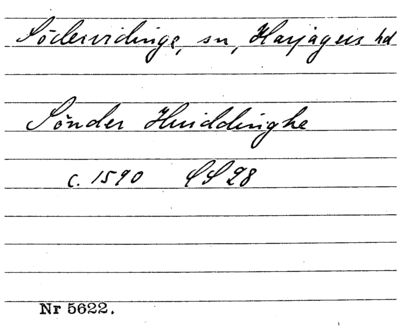 Södervidinge, sn, Harjagers hd
Sönder Hwiddinghe
c. 1590 LS 28
Nr 5622.